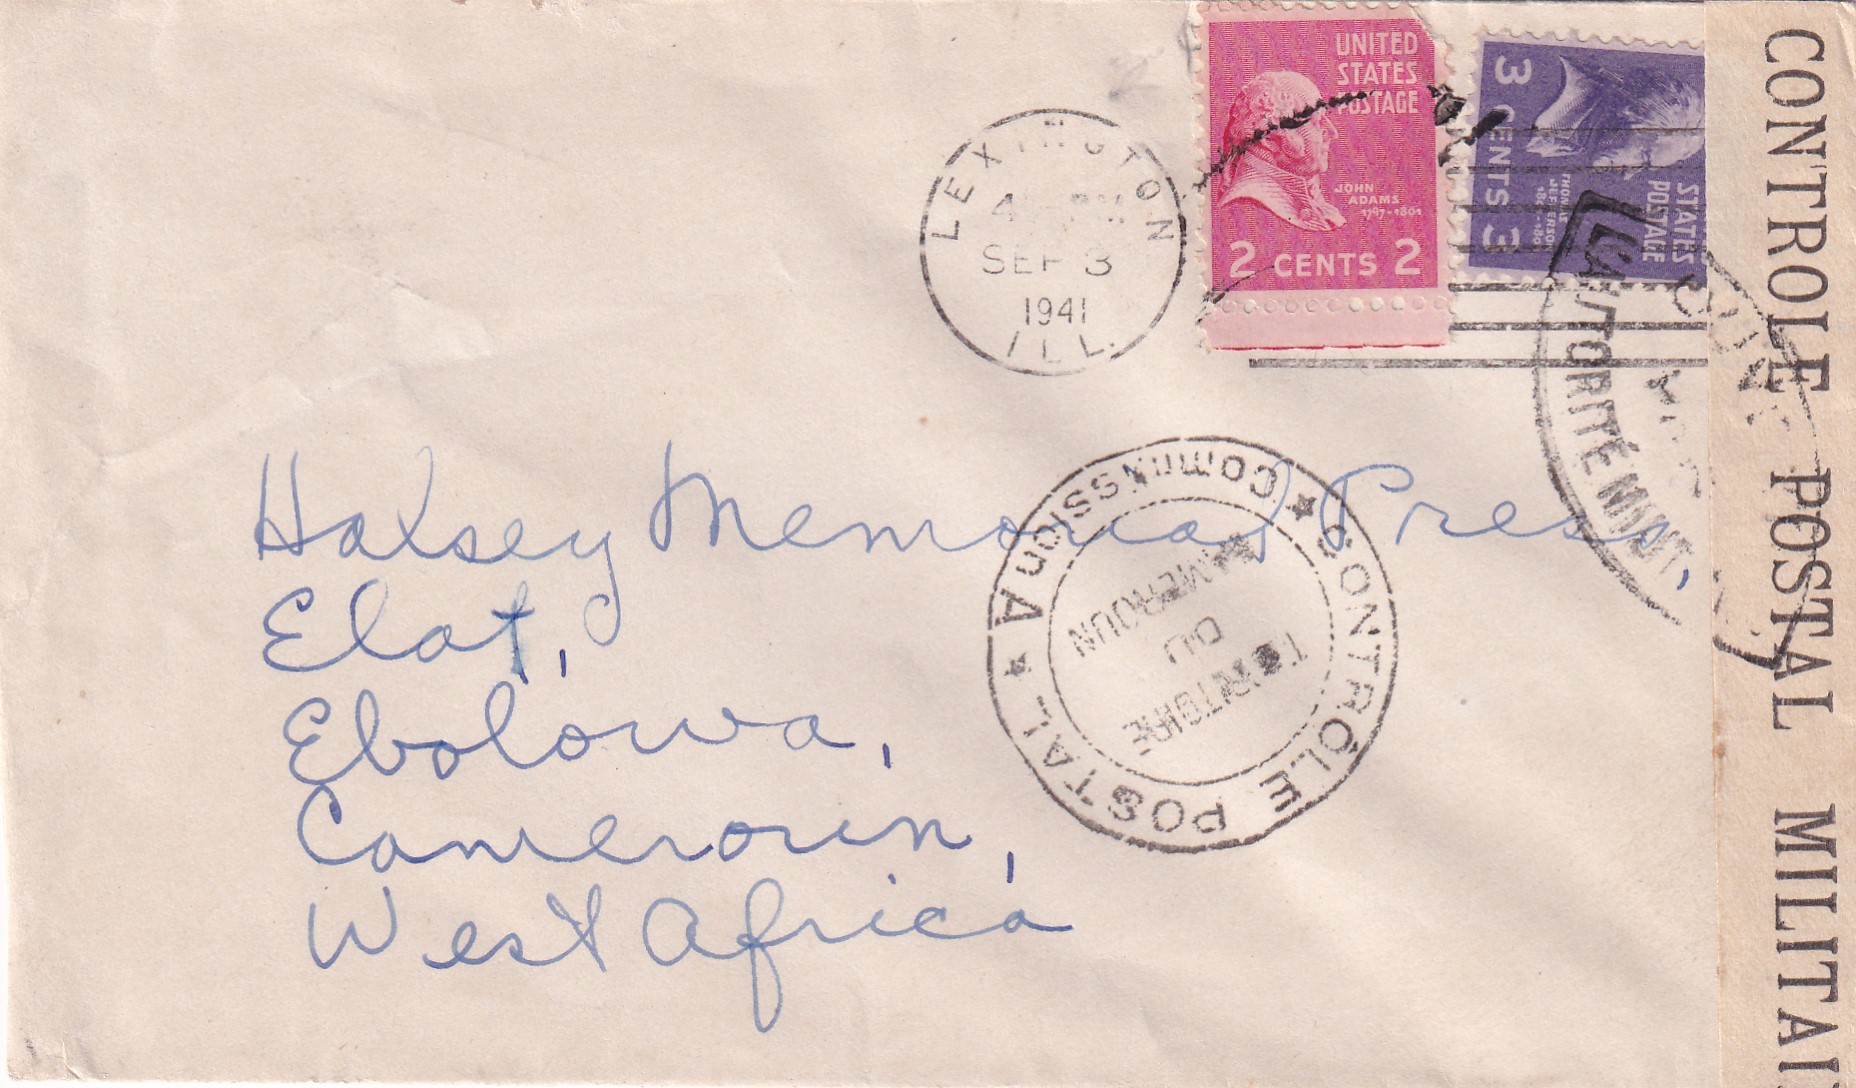 UNITED
STATES
POSTAGE
JOHN
ADAMS
1797-1801
2 CENTS 2
3 CENTS 3
STATES
POSTAGE
THOMAS
JEFFERSON
LEXINGTON
PM
SEP 3
1941
ILL.
L'AUTORITÉ
CONTROLE POSTAL MILITAI
Halsey Memorial Press,
Elat,
Ebolowa,
Cameroun,
West Africa
★ CONTRÔLE POSTAL ★ COMMISSION A
TERRITOIRE
DU
CAMEROUN